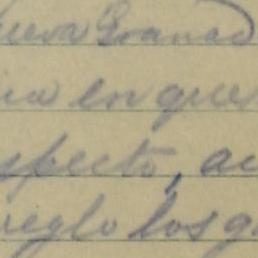 ueva Granad
ia en que
specto, au
reglo los g